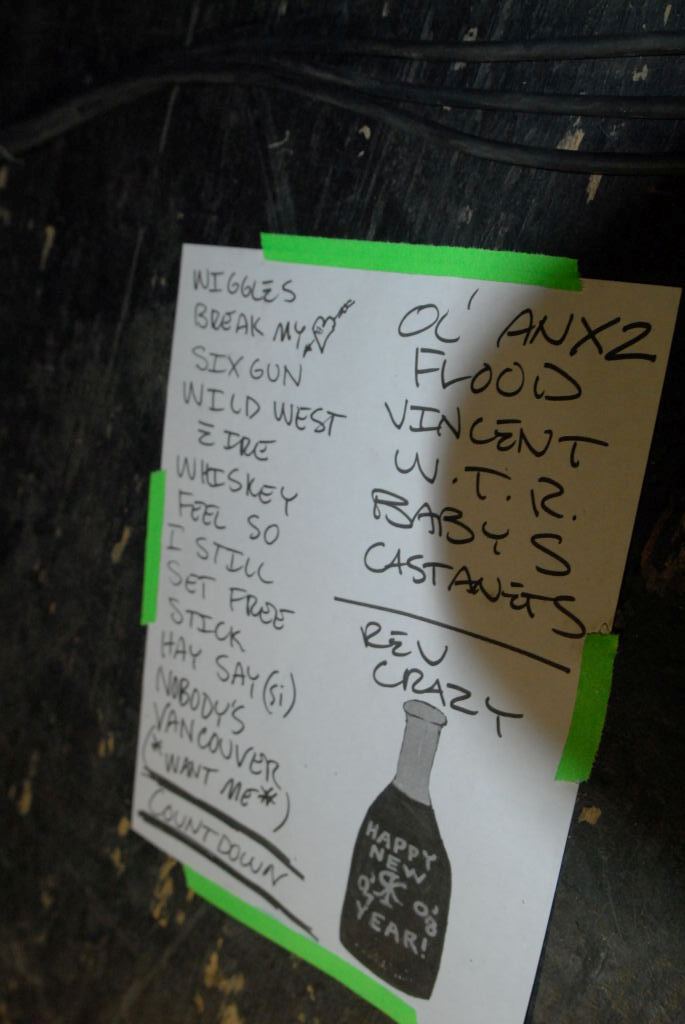 WIGGLES
BREAK MY
SIX GUN
WILD WEST
EIRE
WHISKEY
FEEL SO
I STILL
SET FREE
STICK
HAY SAY (Si)
NOBODY'S
VANCOUVER
(*WANT ME*)
COUNTDOWN
OL' ANX2
FLOOD
VINCENT
W.T.R.
BABY S
CASTANETS
REV
CRAZY
HAPPY
NEW
YEAR!